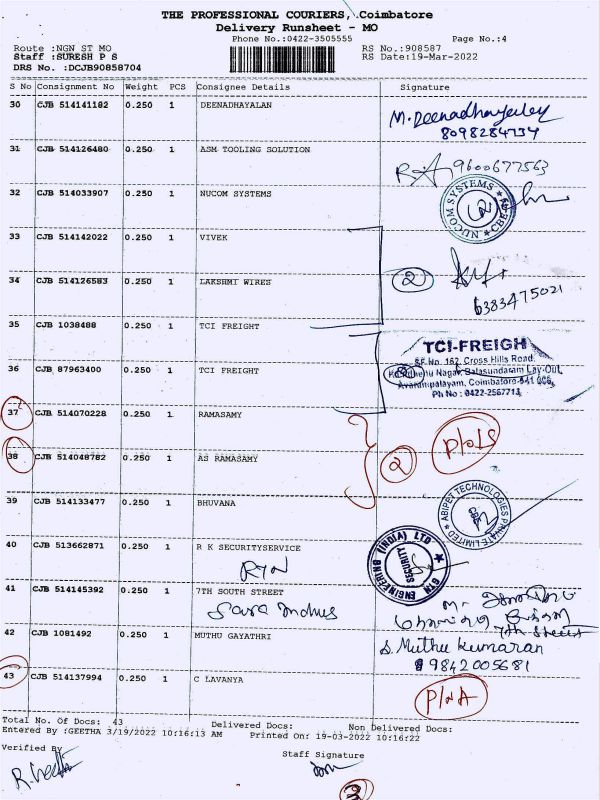 THE PROFESSIONAL COURIERS, Coimbatore
Delivery Runsheet - MO
Phone No.:0422-3505555 Page No.:4
Route :NGN ST MO RS No.:908587
Staff :SURESH P S RS Date:19-Mar-2022
DRS No. :DCJB90858704
S No Consignment No Weight PCS Consignee Details Signature
30 CJB 514141182 0.250 1 DEENADHAYALAN M. Deenadhayaley
8098284734
31 CJB 514126480 0.250 1 ASM TOOLING SOLUTION 9600677563
32 CJB 514033907 0.250 1 NUCOM SYSTEMS
NUCOM SYSTEMS CBE
33 CJB 514142022 0.250 1 VIVEK
34 CJB 514126583 0.250 1 LAKSHMI WIRES 2
6383475021
35 CJB 1038488 0.250 1 TCI FREIGHT
TCI-FREIGH
S.F.No. 162, Cross Hills Road,
36 CJB 87963400 0.250 1 TCI FREIGHT Nagar, Balasundaram Lay-Out,
Avarampalayam, Coimbatore-641 006.
Ph No : 0422-2567713
37 CJB 514070228 0.250 1 RAMASAMY
38 CJB 514048782 0.250 1 AS RAMASAMY 2
39 CJB 514133477 0.250 1 BHUVANA
ABIPET TECHNOLOGIES PRIVATE LIMITED
40 CJB 513662871 0.250 1 R K SECURITYSERVICE
GTN ENGINEERING (INDIA) LTD SECURITY
41 CJB 514145392 0.250 1 7TH SOUTH STREET
7th street
42 CJB 1081492 0.250 1 MUTHU GAYATHRI S. Muthu kumaran
9842005681
43 CJB 514137994 0.250 1 C LAVANYA
P/NA
Total No. Of Docs: 43 Delivered Docs: Non Delivered Docs:
Entered By :GEETHA 3/19/2022 10:16:13 AM Printed On: 19-03-2022 10:16:22
Verified By Staff Signature
3